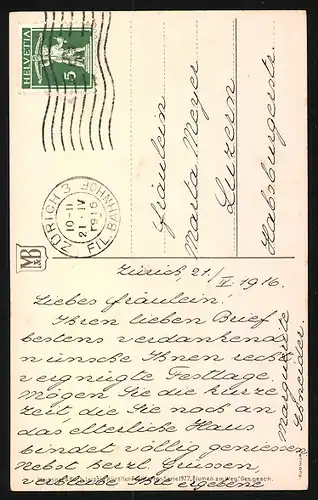 HELVETIA
5
ZÜRICH 3
10-11
21.IV
1916
FIL. BAHNHOF
Fräulein
Marta Meyer
Luzern
Habsburgerstr.
M&B
Zürich, 21./IV 1916.
Liebes Fräulein!
Ihren lieben Brief
bestens verdankend
wünsche Ihnen recht
vergnügte Festtage.
Mögen Sie die kurze
Zeit die Sie noch an
das elterliche Haus
bindet völlig geniessen.
Nebst herzl. Grüssen,
verbleibe Ihre ergebene
Marguerite
Schneider.
"Blumen am Weg" Ges. gesch.